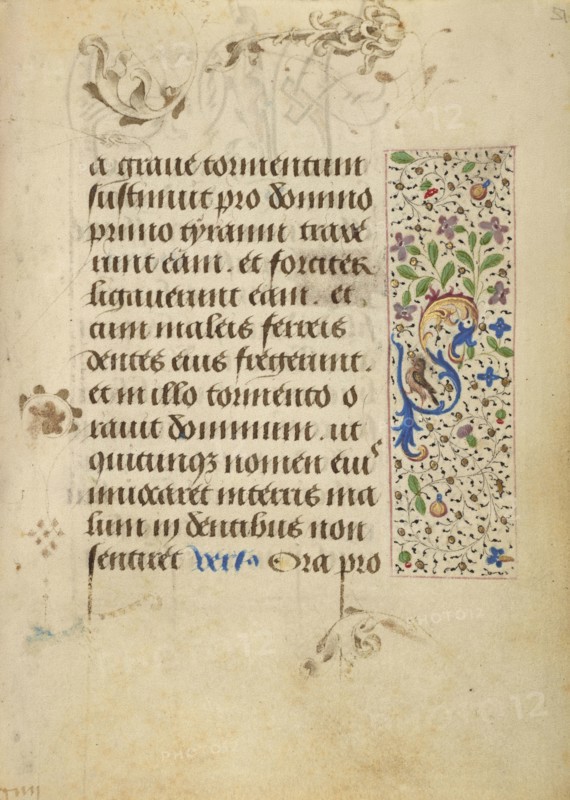 a graue tormentum
sustinuit pro domino
primo tyranni traxe
runt eam . et fortiter
ligauerunt eam . et .
cum maleis ferreis
dentes eius fregerunt .
et in illo tormento o
rauit dominum . ut
quicunqꝫ nomen eiuˢ
inuocaret interris ma
lum in dentibus non
sentiret Versꝰ Ora pro